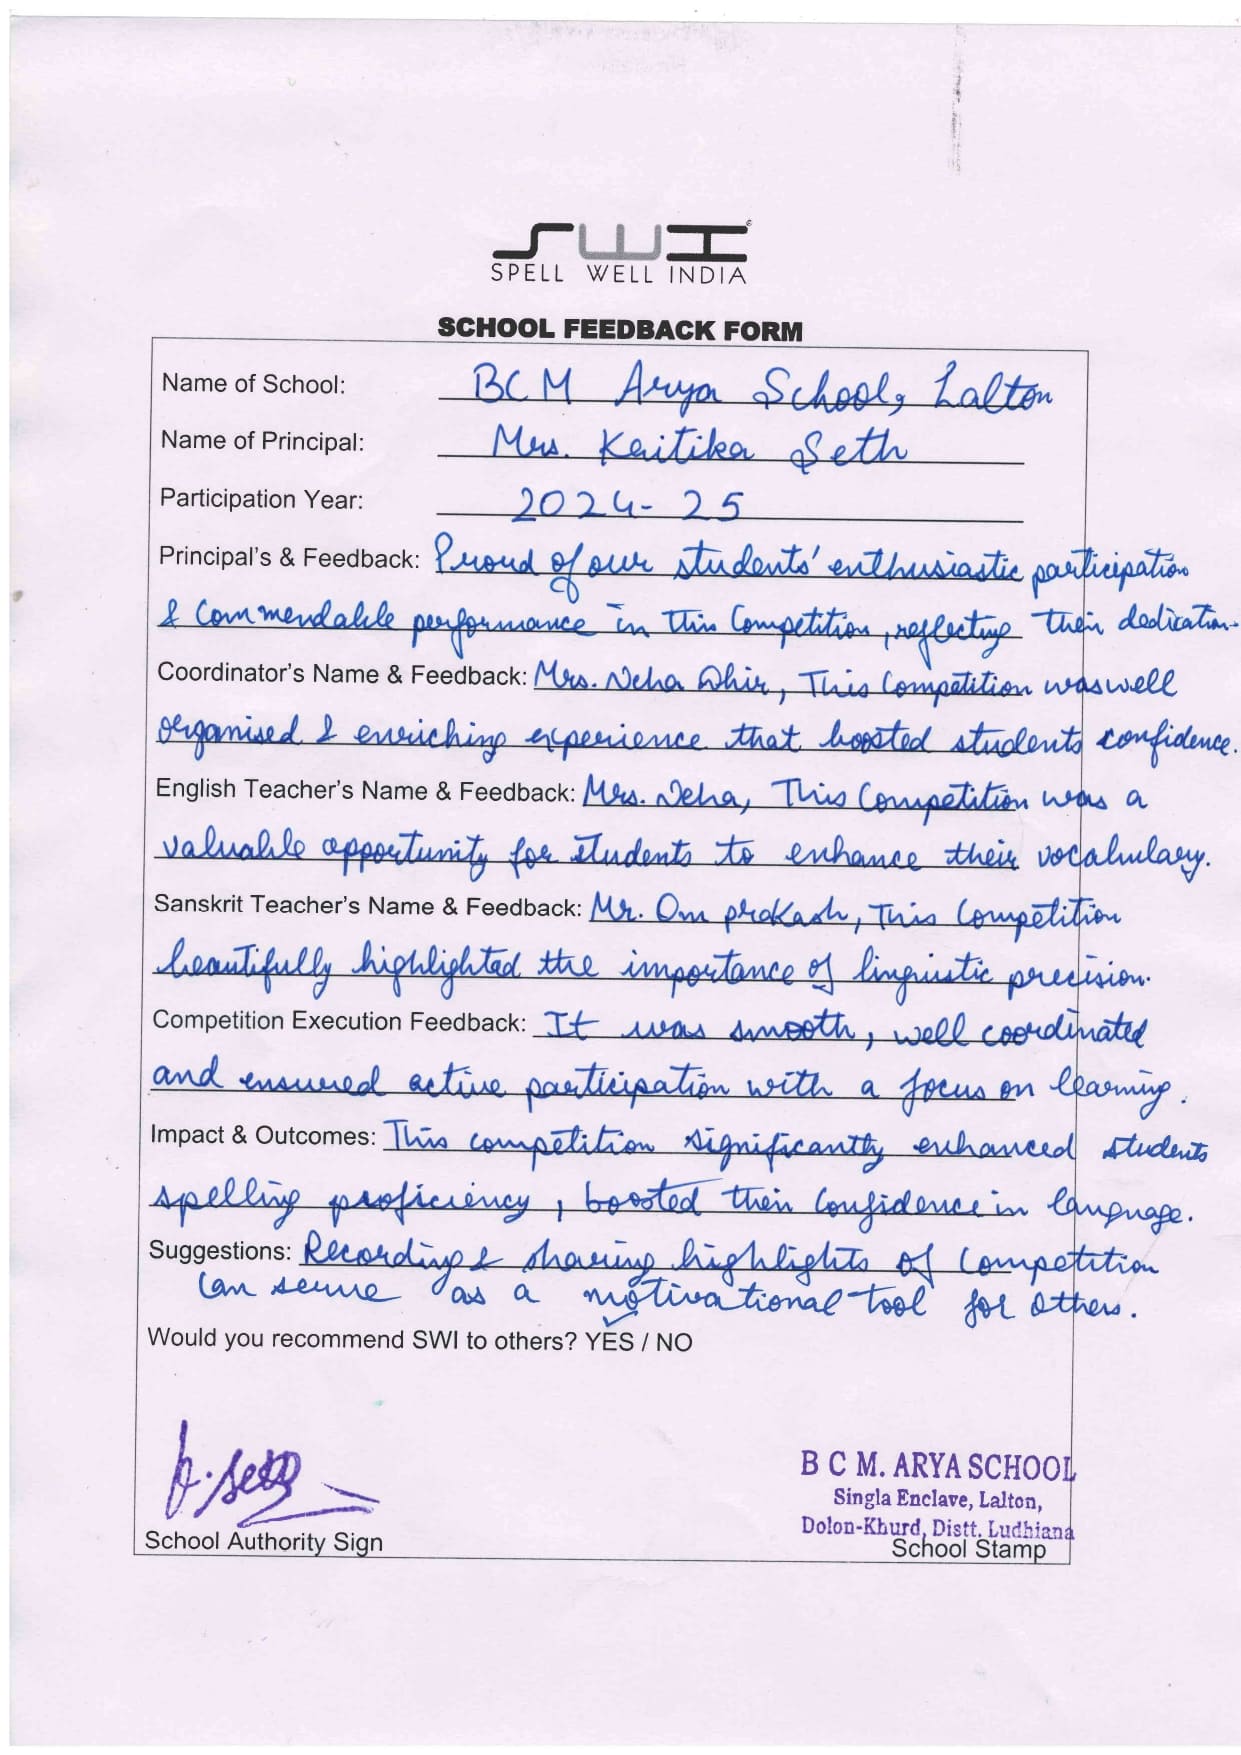 SWI
SPELL WELL INDIA
SCHOOL FEEDBACK FORM
Name of School: BCM Arya School, Lalton
Name of Principal: Mrs. Kritika Seth
Participation Year: 2024-25
Principal's & Feedback: Proud of our students' enthusiastic participation
& Commendable performance in this Competition, reflecting their dedication.
Coordinator's Name & Feedback: Mrs. Neha Dhir, This Competition was well
organised & enriching experience that boosted students confidence.
English Teacher's Name & Feedback: Mrs. Neha, This Competition was a
valuable opportunity for students to enhance their vocabulary.
Sanskrit Teacher's Name & Feedback: Mr. Om prakash, This Competition
beautifully highlighted the importance of linguistic precision.
Competition Execution Feedback: It was smooth, well coordinated
and ensured active participation with a focus on learning.
Impact & Outcomes: This competition significantly enhanced students
spelling proficiency, boosted their Confidence in language.
Suggestions: Recording & sharing highlights of Competetion
Can serve as a motivational tool for others.
Would you recommend SWI to others? YES / NO
B C M. ARYA SCHOOL
Singla Enclave, Lalton,
Dolon-Khurd, Distt. Ludhiana
School Authority Sign
School Stamp